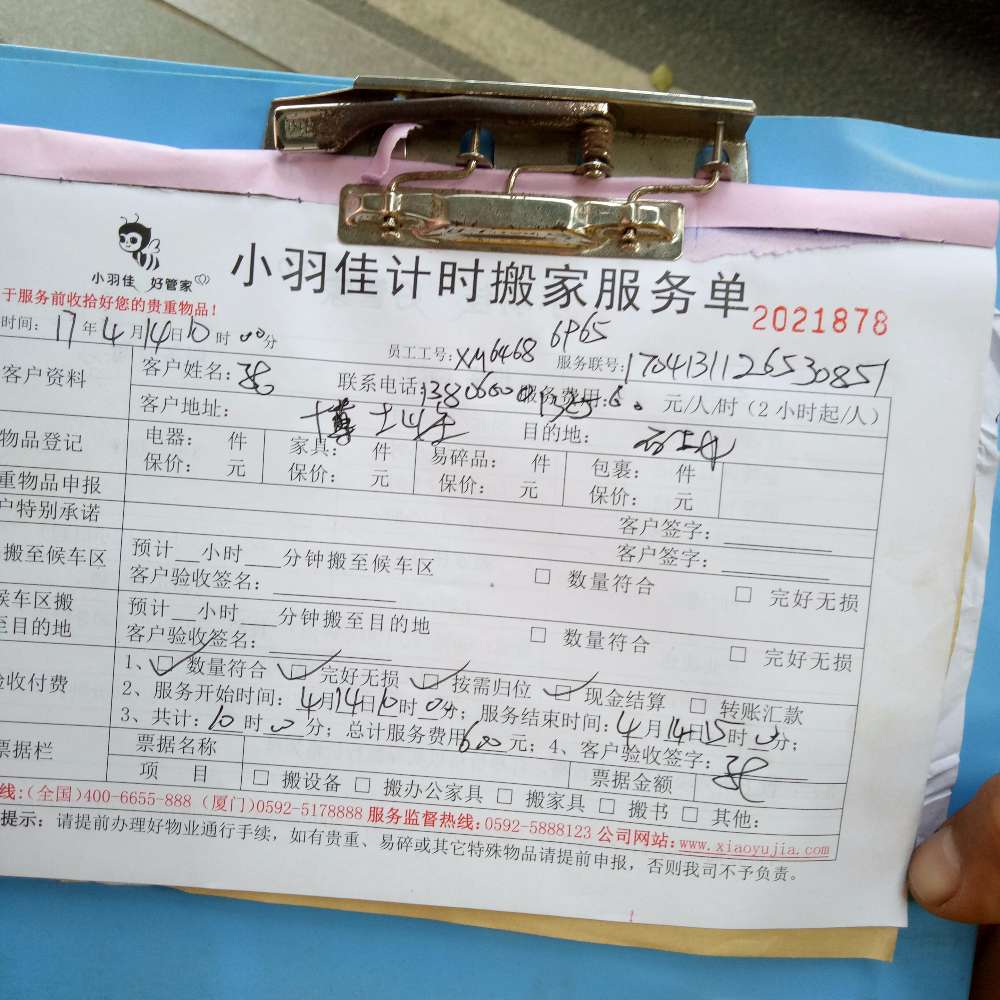 小羽佳 好管家
小羽佳计时搬家服务单
2021878
于服务前收拾好您的贵重物品!
时间: 17年4月14日10时00分
6965
员工工号: XM6468 服务联号: 1704131126530851
客户资料
客户姓名: 联系电话: 服务费用: 60 元/人/时 (2小时起/人)
客户地址: 博士山庄 目的地:
物品登记
电器: 件 家具: 件 易碎品: 件 包裹: 件
保价: 元 保价: 元 保价: 元 保价: 元
重物品申报
客户签字:
户特别承诺
客户签字:
搬至候车区
预计__小时___分钟搬至候车区
客户验收签名: □ 数量符合 □ 完好无损
候车区搬
至目的地
预计__小时___分钟搬至目的地
客户验收签名: □ 数量符合 □ 完好无损
验收付费
1、☑ 数量符合 ☑ 完好无损 ☑ 按需归位 ☑ 现金结算 □ 转账汇款
2、服务开始时间: 4月14日10时0分; 服务结束时间: 4月14日15时0分;
3、共计: 10时0分; 总计服务费用600元; 4、客户验收签字:
票据栏
票据名称 票据金额
项 目 □ 搬设备 □ 搬办公家具 □ 搬家具 □ 搬书 □ 其他:
线:(全国)400-6655-888 (厦门)0592-5178888 服务监督热线:0592-5888123 公司网站:www.xiaoyujia.com
提示: 请提前办理好物业通行手续, 如有贵重、易碎或其它特殊物品请提前申报, 否则我司不予负责。
1